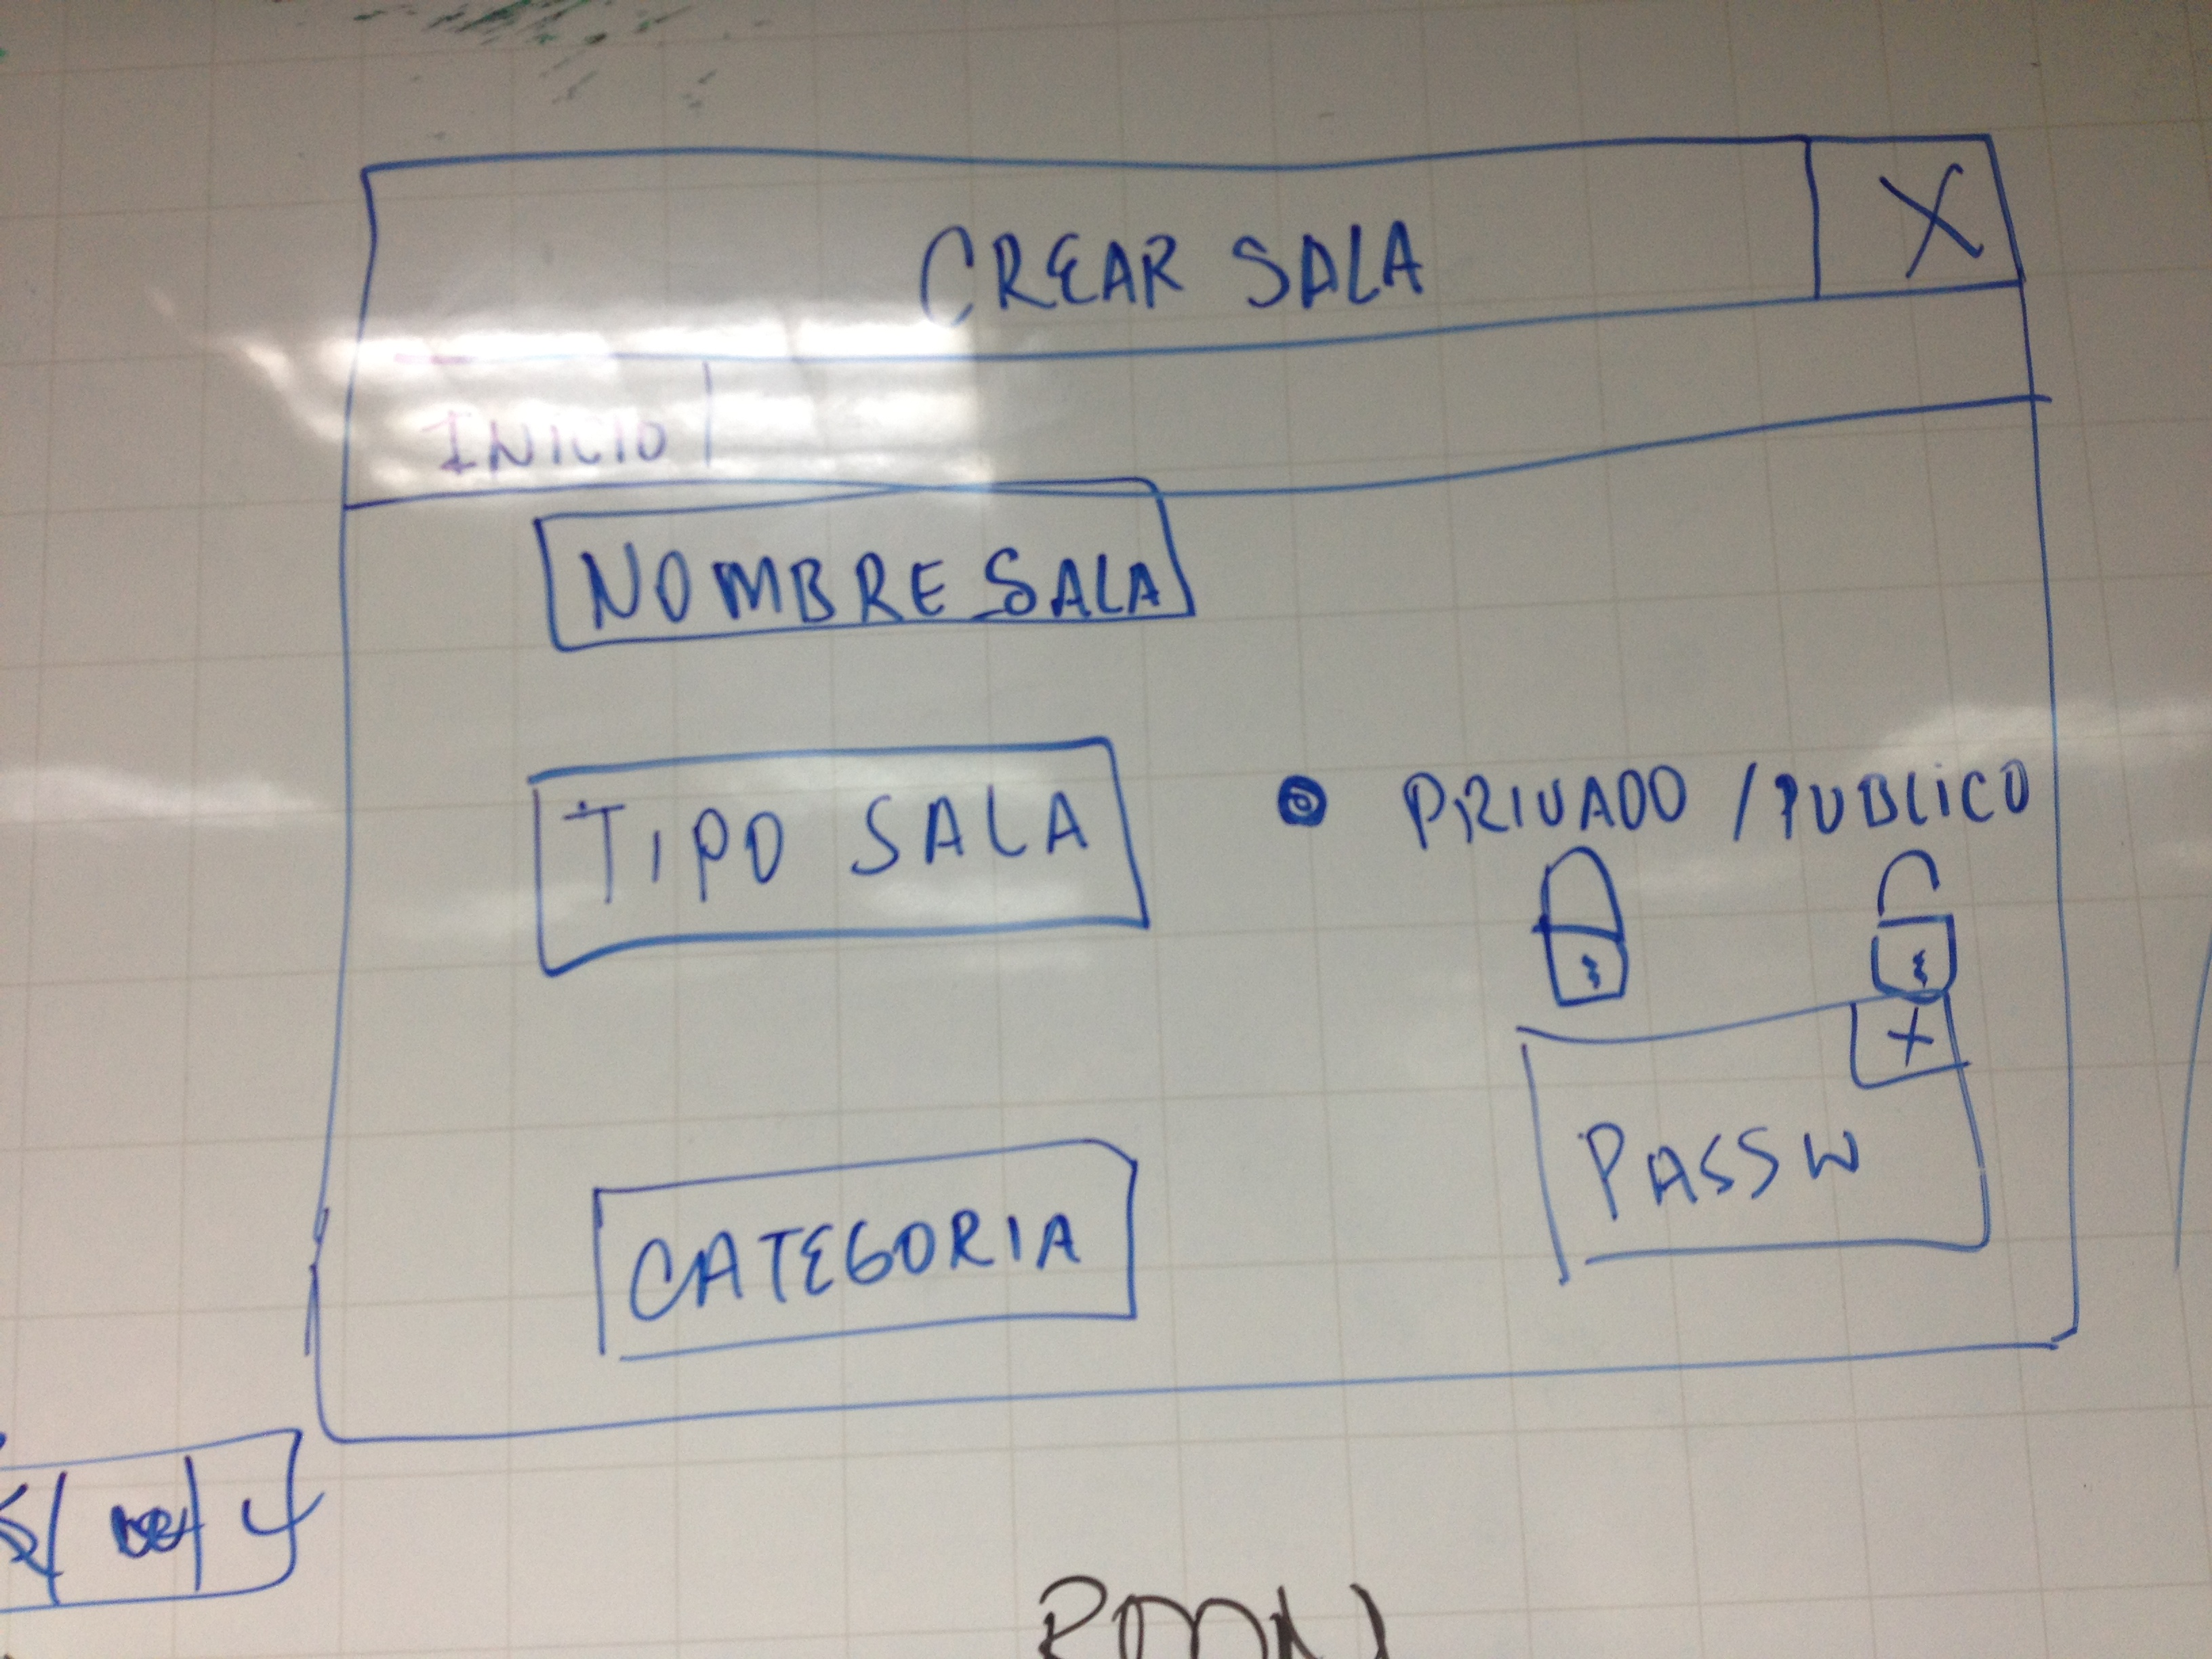 CREAR SALA X
INICIO
NOMBRE SALA
TIPO SALA
PRIVADO / PUBLICO
X
PASSW
CATEGORIA